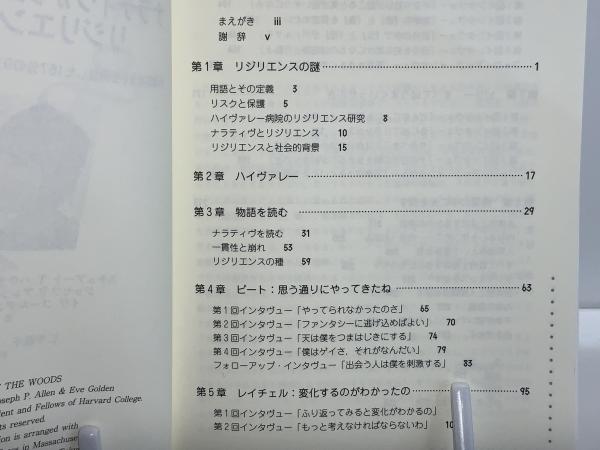 まえがき iii
謝 辞 v
第1章 リジリエンスの謎 1
用語とその定義 3
リスクと保護 5
ハイヴァレー病院のリジリエンス研究 8
ナラティヴとリジリエンス 10
リジリエンスと社会的背景 15
第2章 ハイヴァレー 17
第3章 物語を読む 29
ナラティヴを読む 31
一貫性と崩れ 53
リジリエンスの種 59
第4章 ピート：思う通りにやってきたね 63
第1回インタヴュー「やってられなかったのさ」 65
第2回インタヴュー「ファンタシーに逃げ込めばよい」 70
第3回インタヴュー「天は僕をつまはじきにする」 74
第4回インタヴュー「僕はゲイさ，それがなんだい」 79
フォローアップ・インタヴュー「出会う人は僕を刺激する」 83
第5章 レイチェル：変化するのがわかったの 95
第1回インタヴュー「ふり返ってみると変化がわかるの」
第2回インタヴュー「もっと考えなければならないわ」
THE WOODS
Joseph P. Allen & Eve Golden
dent and Fellows of Harvard College.
ts reserved.
ion is arranged with
in Massachuse